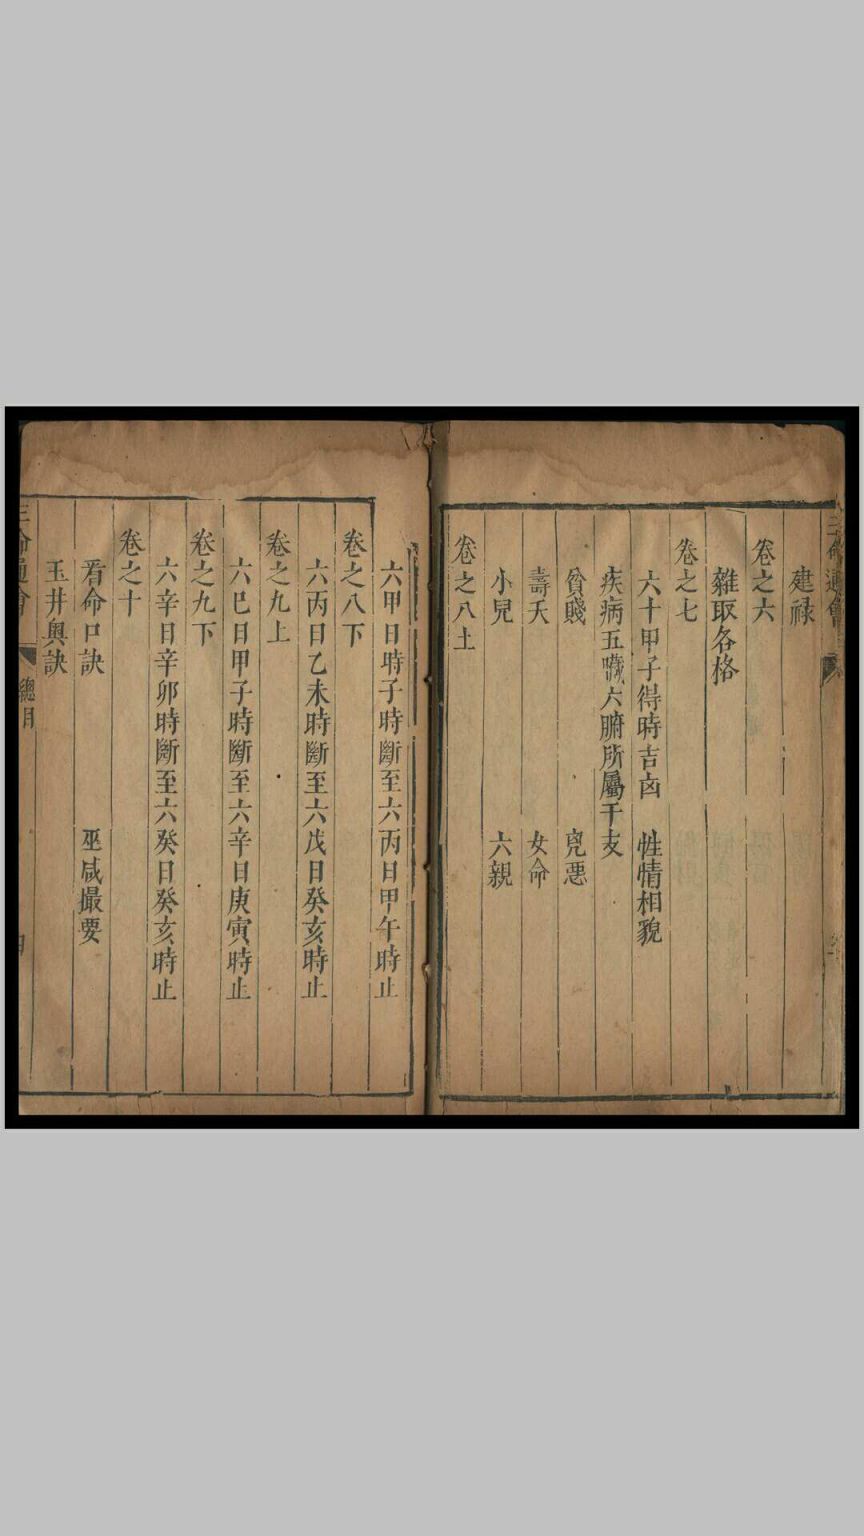 三命通會
建禄
卷之六
雜取各格
卷之七
六十甲子得時吉凶 性情相貌
疾病五臟六腑所屬干支
貧賤 兇惡
壽夭 女命
小兒 六親
卷之八上
六甲日時子時斷至六丙日甲午時止
卷之八下
六丙日乙未時斷至六戊日癸亥時止
卷之九上
六巳日甲子時斷至六辛日庚寅時止
卷之九下
六辛日辛卯時斷至六癸日癸亥時止
卷之十
看命口訣 巫咸撮要
玉井奧訣
三命通會 總目